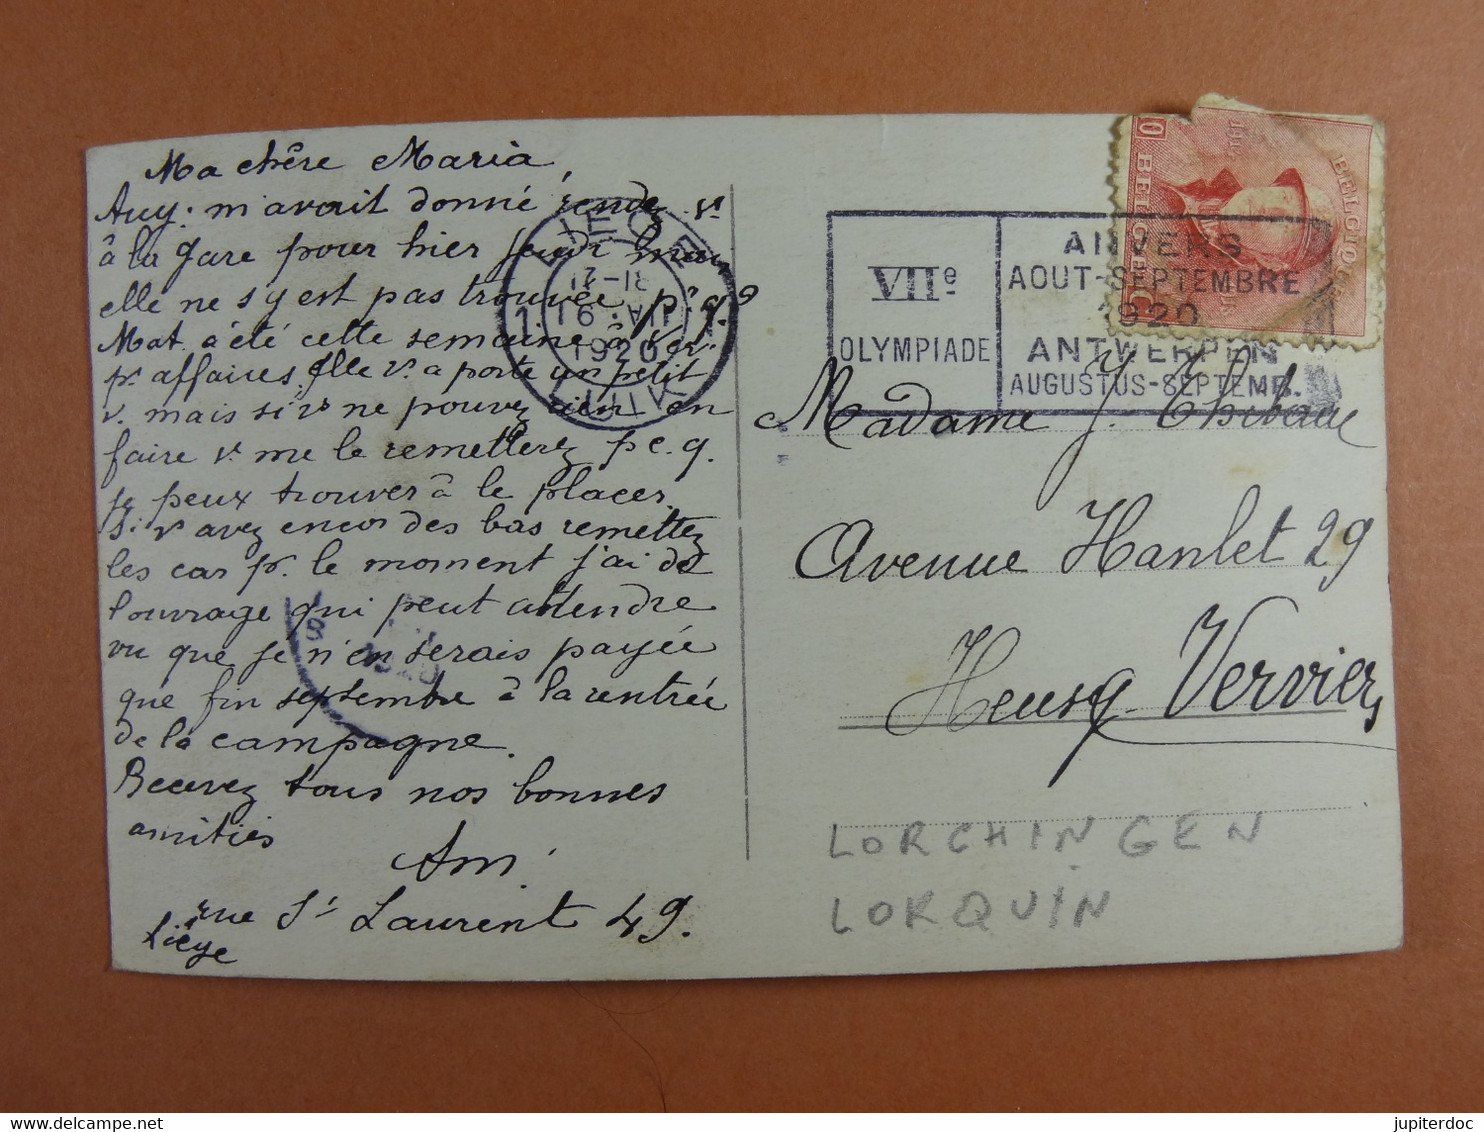 Ma chère Maria
Aug. m'avait donné rendez vs
à la gare pour hier jeudi mais
elle ne s'y est pas trouvée pr q?
Mat. a été cette semaine à Ver.
pr affaires. Elle vs a porté un petit
v. mais si vs ne pouvez rien en
faire vs me le remettrez p c. q.
je peux trouver à le placer.
Si vs avez encor des bas remettez
les car pr. le moment j'ai de
l'ouvrage qui peut attendre
vu que je n'en serais payée
que fin septembre à la rentrée
de la campagne.
Recevez tous nos bonnes
amitiés
Am.
rue St Laurent 49.
Liége
LIEGE
21-22
16 1920
1920
VIIe
OLYMPIADE
ANVERS
AOUT-SEPTEMBRE
1920
ANTWERPEN
AUGUSTUS-SEPTEMB.
BELGIQUE
BELGIE
Madame J.
Avenue Hanlet 29
Heusy Verviers
LORCHINGEN
LORQUIN
jupiterdoc